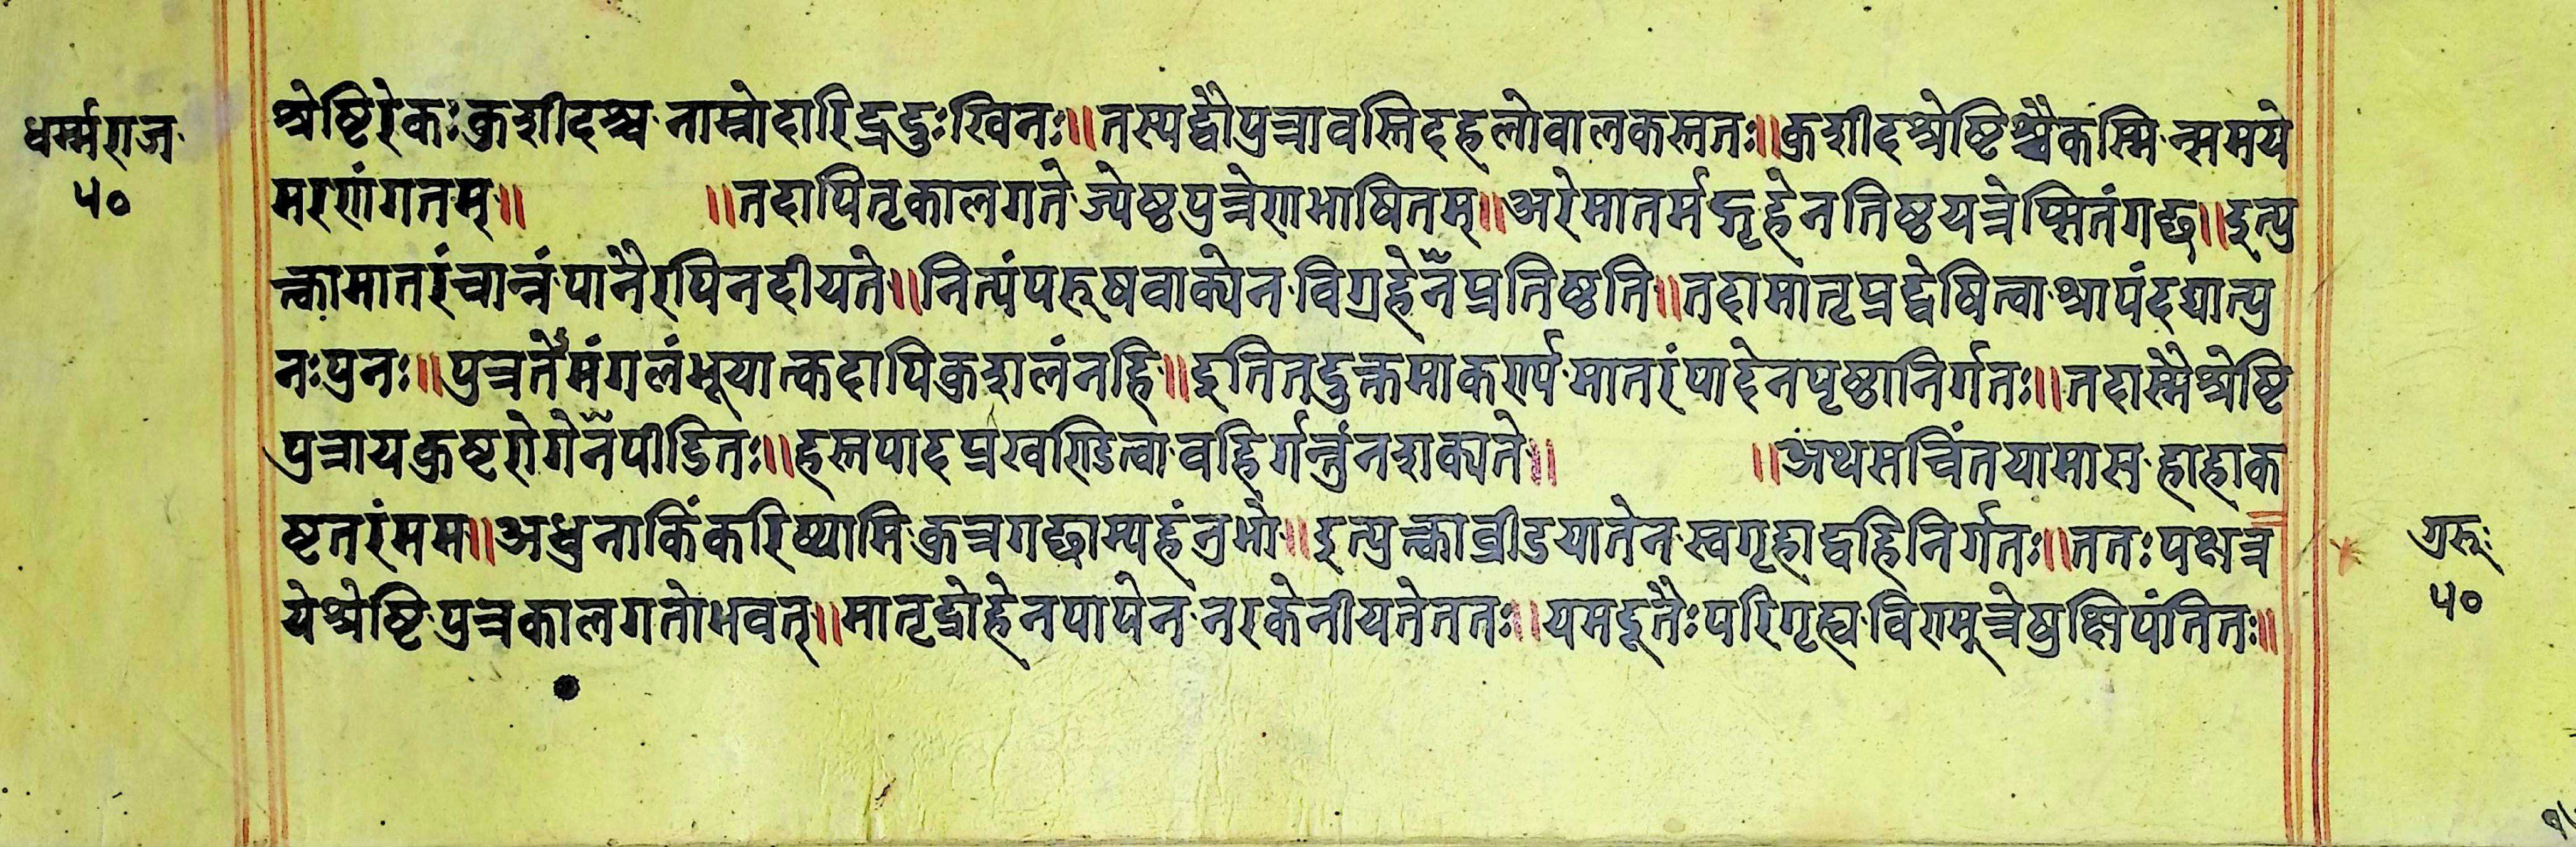 धर्म्मराज
५०
श्रेष्टिरेकः कुशीदश्च नाम्नोदारिद्रदुःखिनः॥ तस्यद्वौपुत्रावस्तिदहलोवालकस्ततः॥ कुशीदश्रेष्टिश्चैकस्मिन्समये
मरणंगतम्॥ ॥तदापितृकालगते ज्येष्ठपुत्रेणभाषितम्॥ अरेमातर्मद्गृहेनतिष्ठयत्रेप्सितंगच्छ॥ इत्यु
त्क्वामातरंचान्नंपानैरपिनदीयते॥ नित्यंपरूषवाक्येन विग्रहेनैप्रतिष्ठति॥ तदामातृप्रद्वेषित्वा श्रापंदद्यात्पु
नःपुनः॥ पुत्रतेमंगलंभूयात्कदापिकुशलंनहि॥ इतितदुक्तमाकर्ण्य मातरंपादेनपृष्ठानिर्गतः॥ तदास्मैश्रेष्टि
पुत्रायकुष्टरोगेनैपीडितः॥ हस्तपादप्रखण्डित्वा वहिर्गन्तुंनशक्यते॥ ॥अथसचिंतयामास हाहाक
ष्टतरंमम॥ अधुनाकिंकरिष्यामि कुत्रगच्छाम्यहंनुभो॥ इत्युत्क्वाव्रीडयातेन स्वगृहाद्वहिनिर्गतः॥ ततःपक्षत्र
येश्रेष्टिपुत्रकालगतोभवत्॥ मातृद्रोहेनपापेन नरकेनीयतेततः॥ यमदूतैःपरिगृह्य विण्मूत्रेषुक्षिपंतितः॥
गुरूः
५०